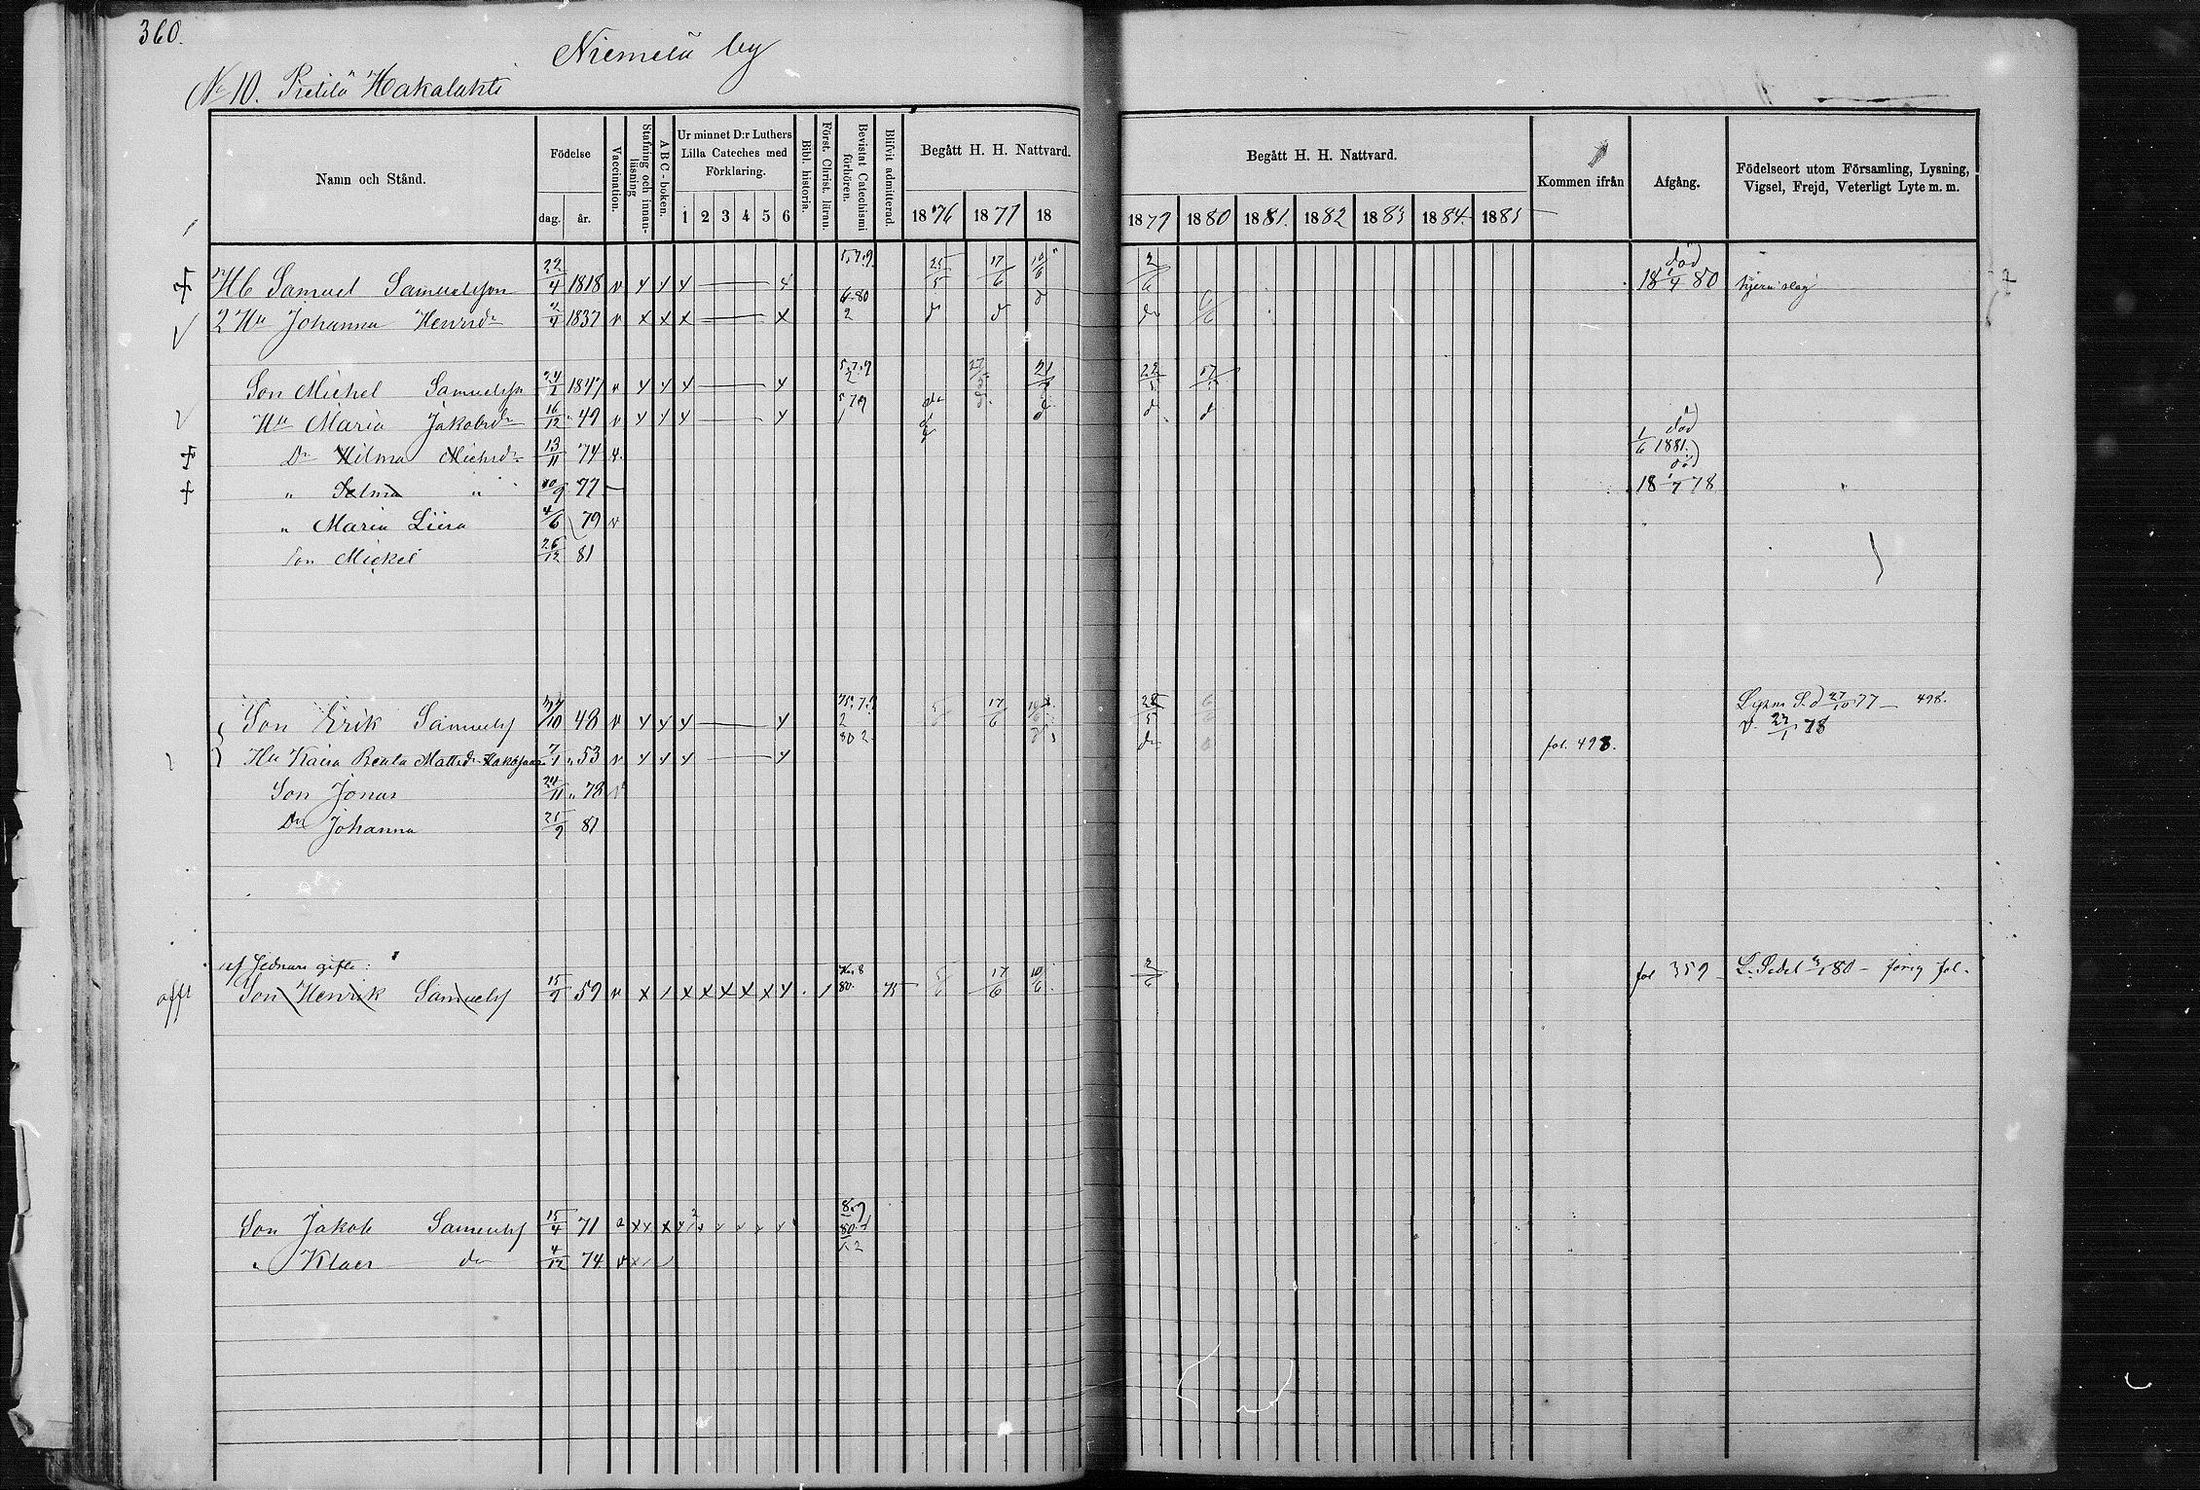 360.
Niemelä by
No 10. Pietilä Hakalahti
Namn och Stånd.
Födelse
dag. år.
Vaccination.
Stafning och innanläsning
ABC-boken.
Ur minnet D:r Luthers Lilla Cateches med Förklaring.
1 2 3 4 5 6
Bibl. historia.
Först. Christ. läran.
Bevistat Catechismi förhören.
Blifvit admitterad.
Begått H. H. Nattvard.
1876 1877 18
Begått H. H. Nattvard.
1879 1880 1881. 1882 1883 1884. 1885
Kommen ifrån
Afgång.
Födelseort utom Församling, Lysning, Vigsel, Frejd, Veterligt Lyte m. m.
Hb Samuel Samuelsson 22/4 1818 v x x x — x 5.7.9. 25/5 17/6 10/6 2/6 död 18 1/4 80 hjernslag
2 Hu Johanna Henrsdr 2/4 1837 v x x x — x 6.80 2 d d d do 6/6
Son Michel Samuelss 24/2 1847 v x x x — x 5.7.9 2 22/5
Hu Maria Jakobsdr 16/12 " 49 v x x x — x 5 7 9 do d d d d
Dr Hilma Michsdr 13/11 74 v. död 1/6 1881.
" Selma " 10/9 77 — död 18 1/7 78
" Maria Liisa 4/6 79 v
Son Mickel 26/12 81
Son Erik Samuelss 48 v x x x — x 2 17/6 28/5 6/6 Lysn S.d 27/10 77 — 498.
v. 27/1 78
Hu Kaisa Beata Mattsdr 7/1 " 53 v x x x — x 80 2 do fol. 498.
Son Jonas 24/11 " 78 v
Dr Johanna 21/9 81
af Sednare gifte:
afft Son Henrik Samuelss 15/9 59 v x / x x x x x x . / 80. 75 — 17/6 10/6 2/6 fol 359 — L. Sedel 80 — förrig fol.
Son Jakob Samuelss 15/4 71 8.9 80.1
" Klaes do 4/12 74 v